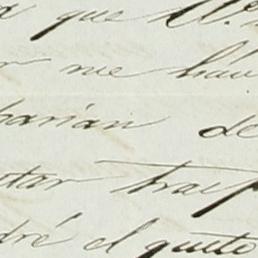 a que U.
me hán
barián de
tar trasp
dré el gusto